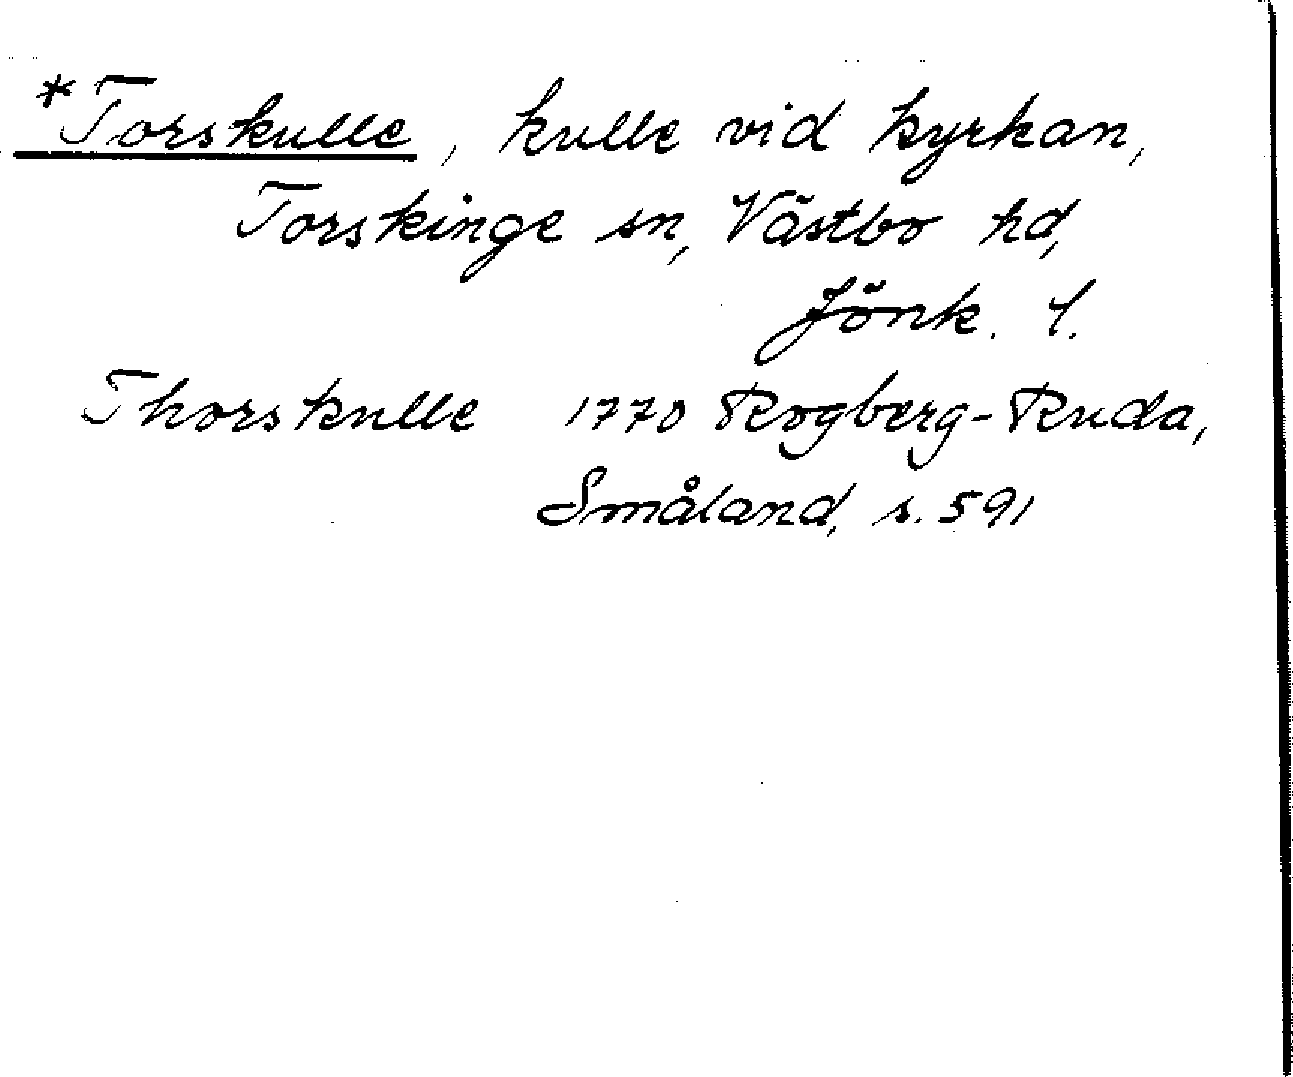 *Torskulle, kulle vid kyrkan,
Torskinge sn, Västbo hd,
Jönk. l.
Thorskulle 1770 Rogberg-Ruda,
Småland, s. 591